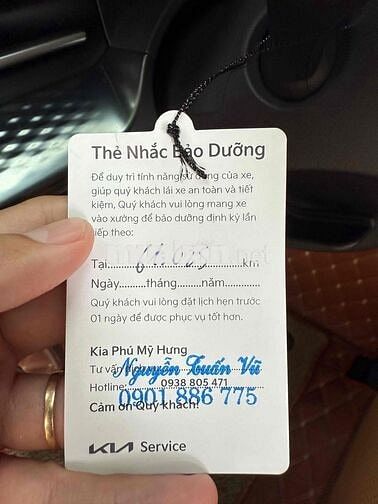 Thẻ Nhắc Bảo Dưỡng
Để duy trì tính năng sử dụng của xe,
giúp quý khách lái xe an toàn và tiết
kiệm, Quý khách vui lòng mang xe
vào xưởng để bảo dưỡng định kỳ lần
tiếp theo:
Tại..............................km
Ngày..........tháng.........năm.............
Quý khách vui lòng đặt lịch hẹn trước
01 ngày để được phục vụ tốt hơn.
Kia Phú Mỹ Hưng
Tư vấn dịch vụ: Nguyễn Tuấn Vũ
Hotline: 0938 805 471
0901 886 775
Cảm ơn Quý khách!
KIA Service